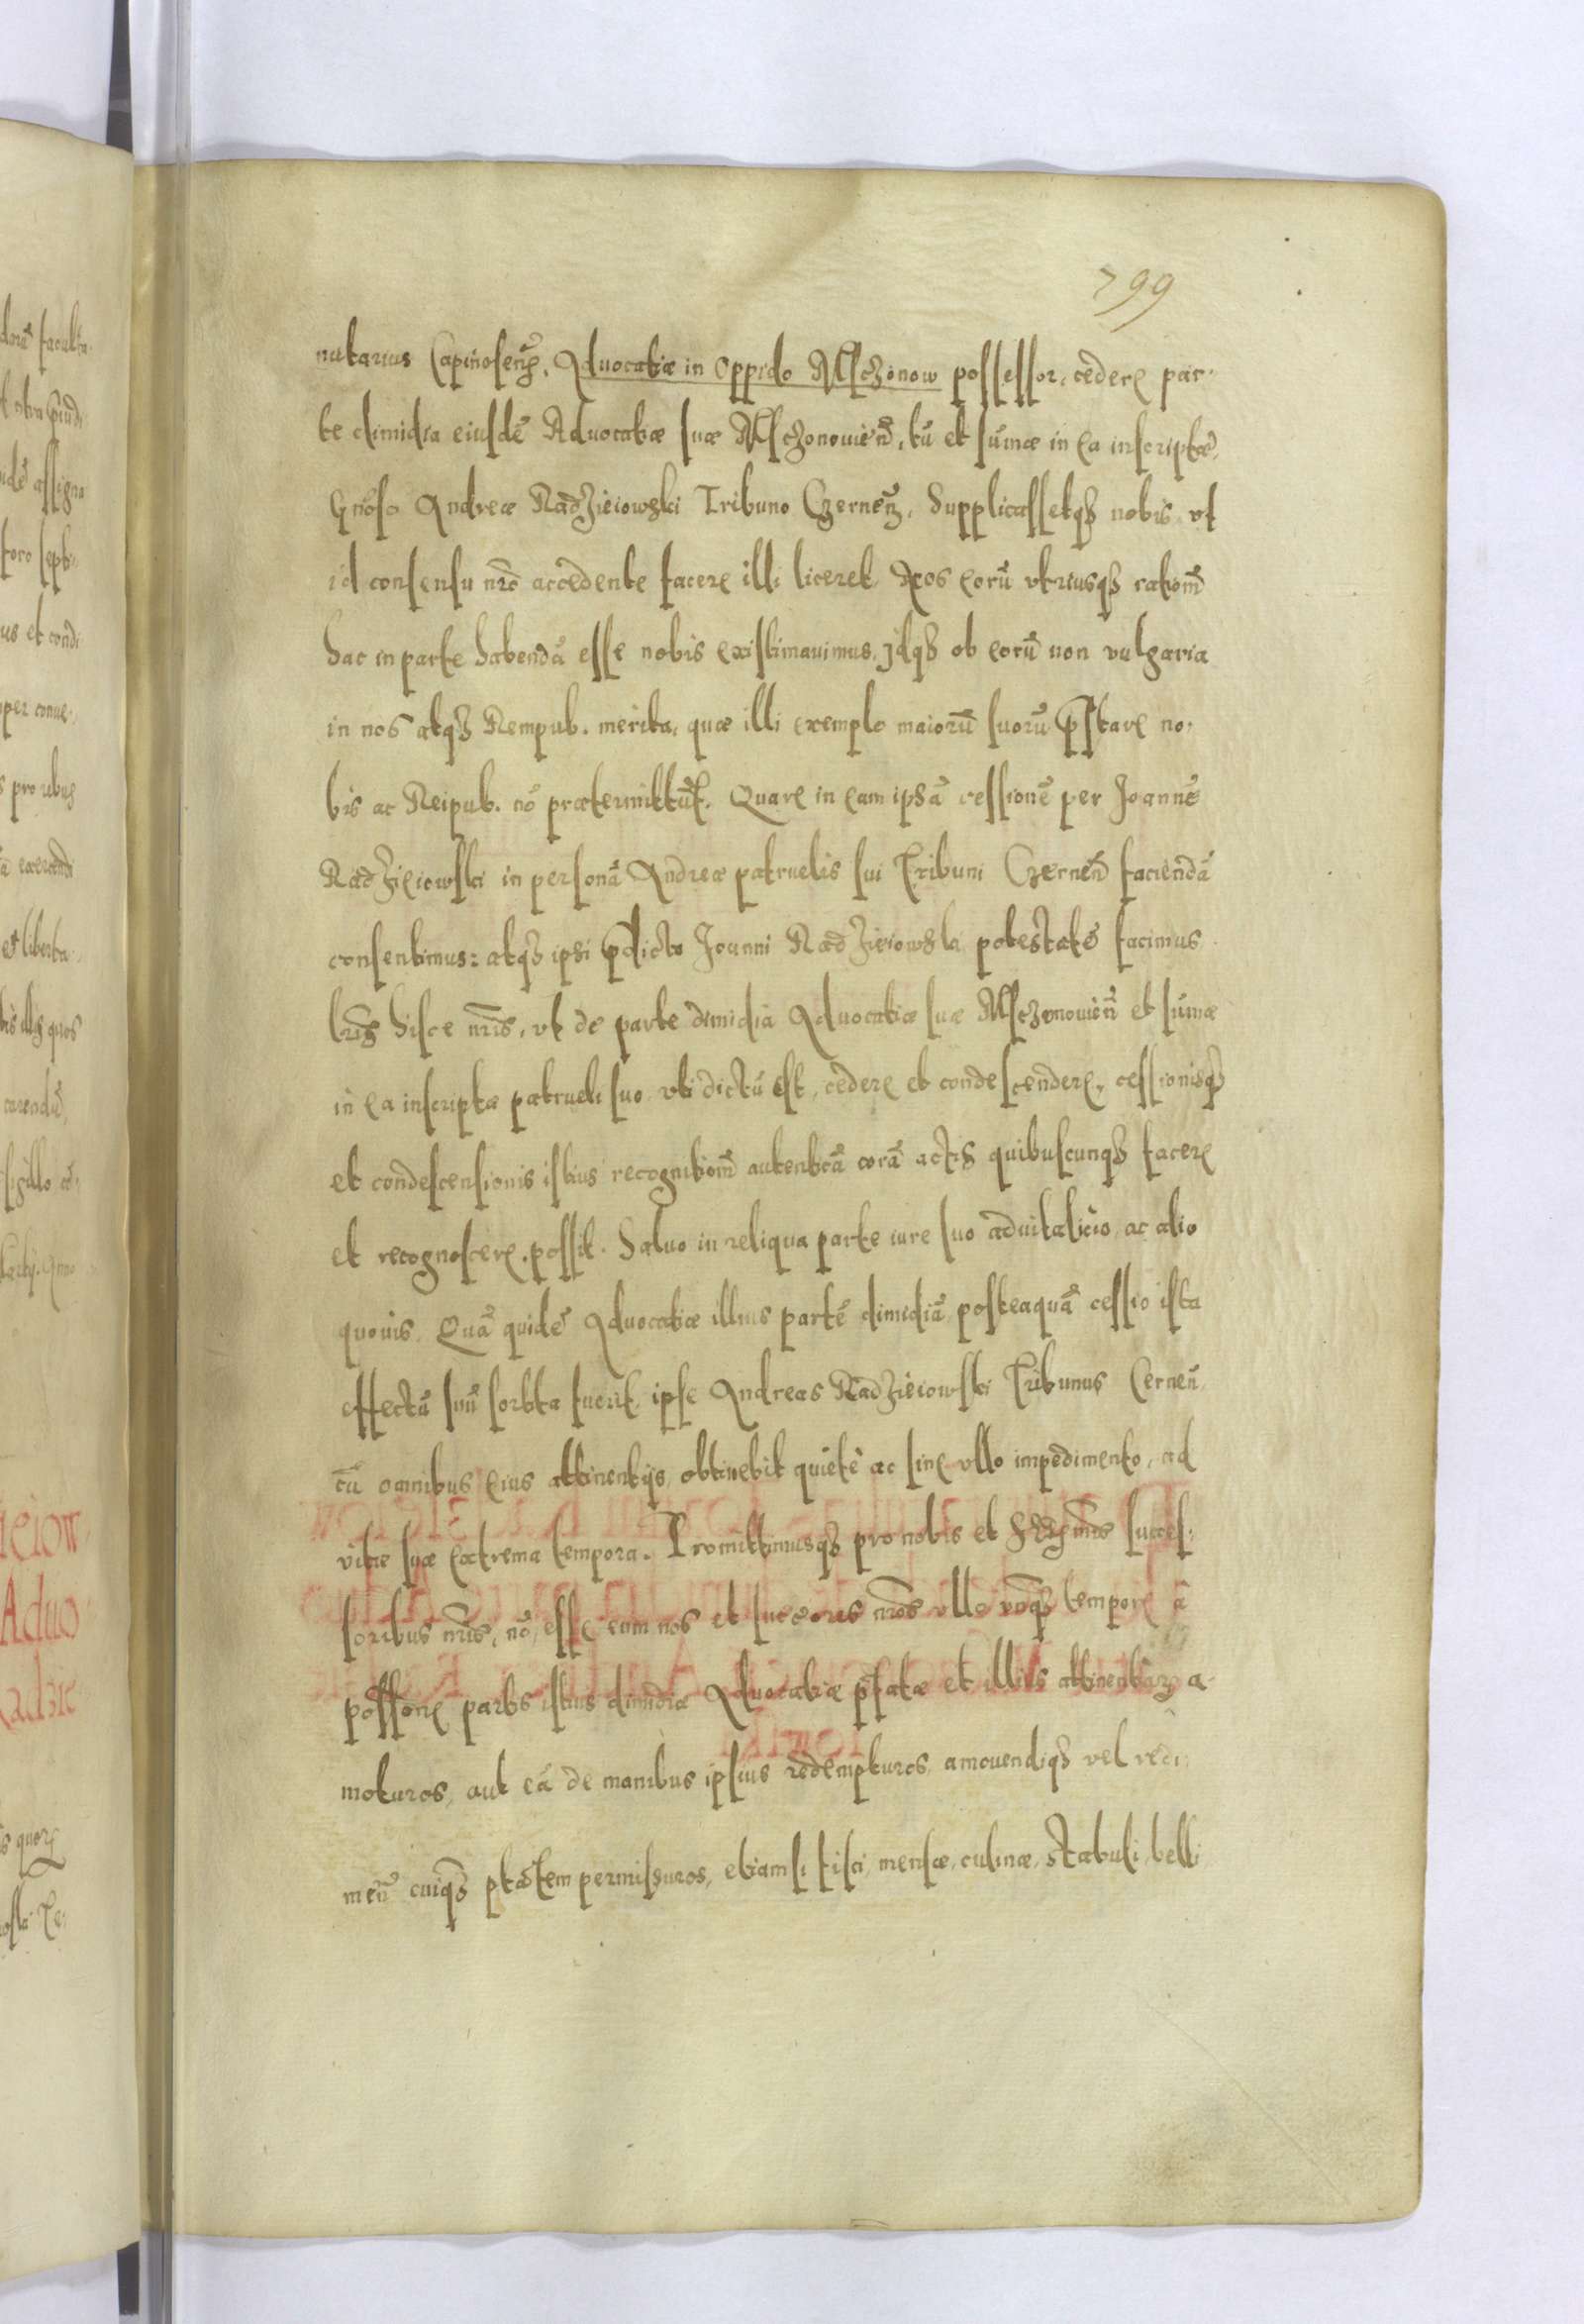 799
nutarius Capinoseñ, Aduocatiæ in Oppido Msczonow possessor, cedere par-
te dimidia eiusdē Aduocatiæ suæ Msczonouieñ, tū et sūmæ in ea inscriptæ,
Gnoso Andreæ Radzieiowski Tribuno Czerneñ, Supplicassetq3 nobis, vt
id consensu nrō accedente facere illi liceret. Nos eorū vtriusq3 rationē
hac in parte habendā esse nobis existimauimus, Idq3 ob eorū non vulgaria
in nos atq3 Rempub. merita, quæ illi exemplo maiorū suorū p̄stare no-
bis ac Reipub. nō prætermittūt. Quare in eam ipsā cessionē per Joannē
Radzieiowski in personā Andreæ patruelis sui Tribuni Czerneñ faciendā
consentimus: atq3 ipsi p̄dicto Joanni Radzieiowski potestatē facimus
lr̄is hisce nr̄is, vt de parte dimidia Aduocatiæ suæ Msczonouieñ et sūmæ
in ea inscriptæ patrueli suo, vti dictū est, cedere et condescendere, cessionisq3
et condescensionis istius recognitionē autenticā corā actis quibuscunq3 facere
et recognoscere possit. Saluo in reliqua parte iure suo aduitalicio, ac alio
quouis. Quā quidē Aduocatiæ illius partē dimidiā, posteaquā cessio ista
effectū suū sortita fuerit, ipse Andreas Radzieiowski Tribunus Cerneñ,
cū omnibus eius attinentijs, obtinebit quietè ac sine vllo impedimento, ad
vitæ suæ extrema tempora. Promittimusq3 pro nobis et Serenis succes-
soribus nr̄is, nō esse eum nos et succores nr̄os vllo vnq̄ tempore à
possone partis istius dimidiæ Aduocatiæ p̄fatæ et illius attinentiarū a-
moturos, aut eā de manibus ipsius redempturos, amouendiq3 vel redi-
meñ cuiq̄3 ptātem permissuros, etiamsi fisci, mensæ, culinæ, stabuli, belli